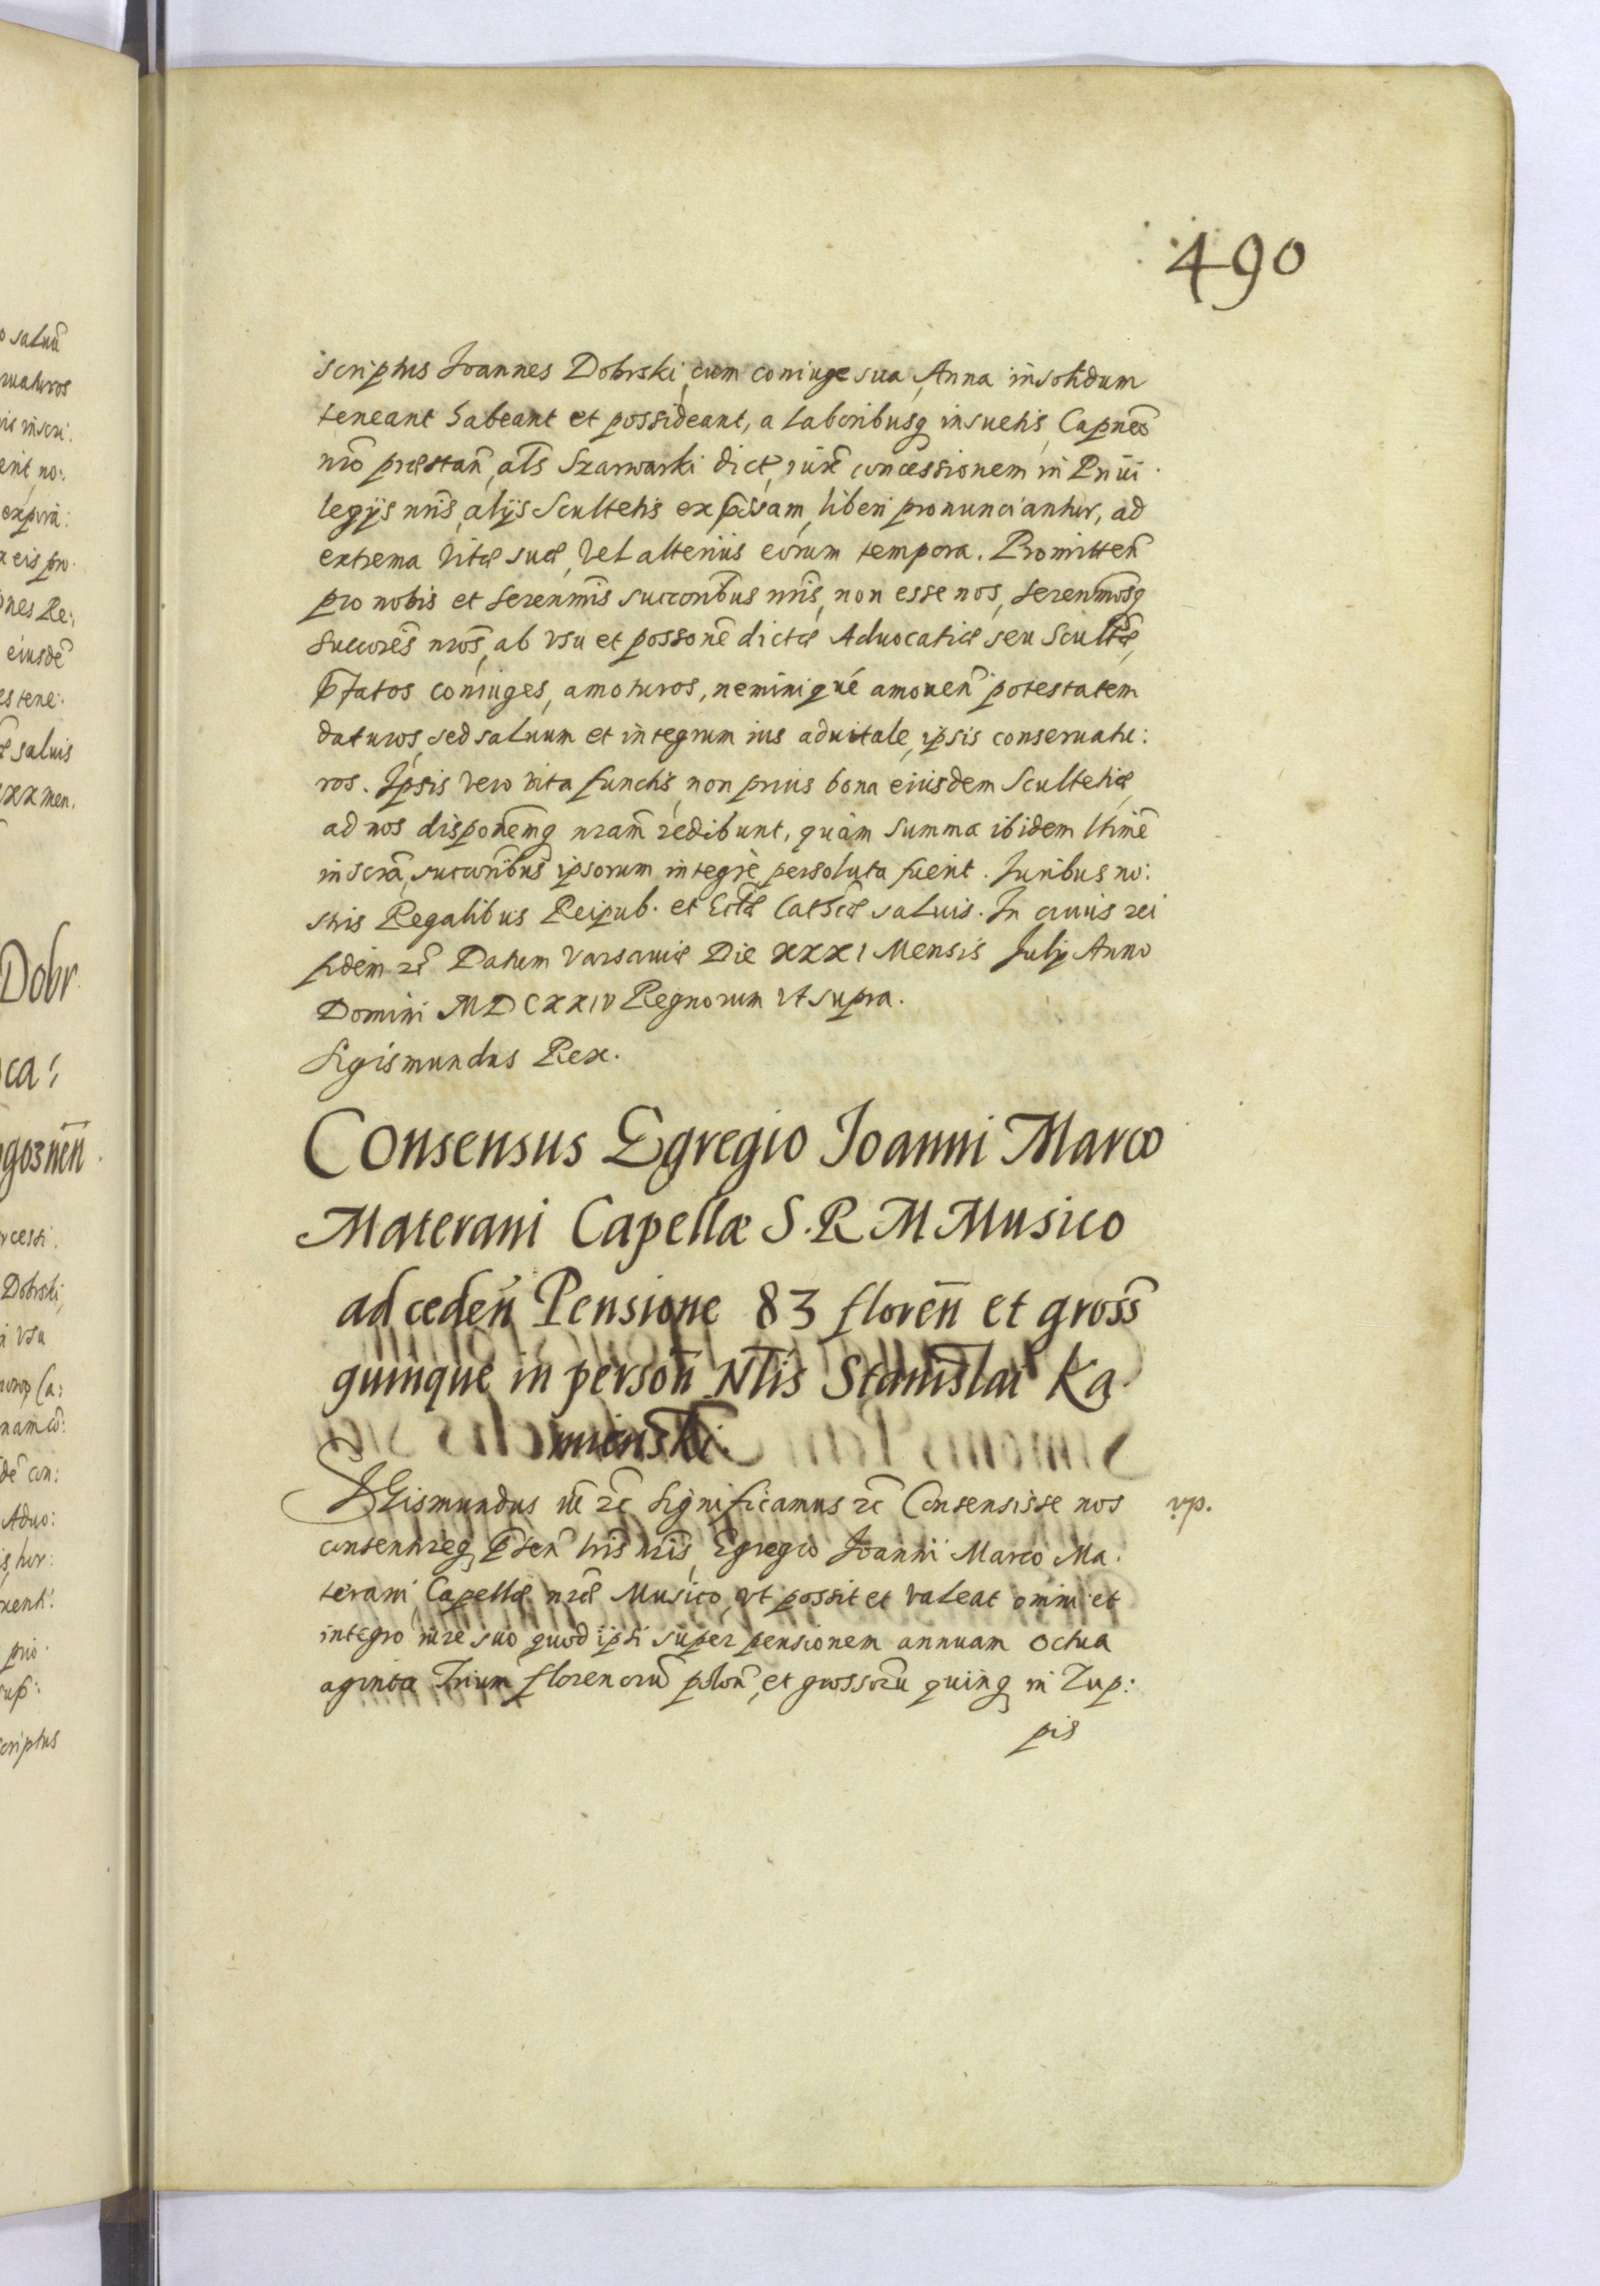 490
scriptus Joannes Dobrski, cum coniuge sua, Anna in solidum
teneant habeant et possideant, a laboribusq insuetis, Capneo
nro præstan, als Szarwarki dict, iuxt concessionem in Priui
legijs nris, alijs Scultetis expssam, liberi pronunciantur, ad
extrema vitæ suæ, vel alterius eorum tempora. Promitten
pro nobis et serenmis succoribus nris, non esse nos, serenmosq
succores nros, ab vsu et possone dictæ Aduocatiæ seu Scultæ,
pfatos coniuges, amoturos, neminiqué amouen potestatem
daturos, sed saluum et integrum ius aduitale, ipsis conseruatu:
ros. Ipsis vero vita functis, non prius bona eiusdem Scultetiæ,
ad nos disponemq nram redibunt, quàm summa ibidem ltime
inscra, succoribus ipsorum integrè persoluta fuerit. Juribus no:
stris Regalibus Reipub. et Ecclæ Cathcæ saluis. In cuius rei
fidem rc Datum Varsauiæ Die XXXI Mensis Julij Anno
Domini MDCXXIV Regnorum vt supra.
Sigismundus Rex.
Consensus Egregio Joanni Marco
Materani Capellæ S. R M Musico
ad ceden Pensione 83 floren et gross
quinque in person Nlis Stanislai Ka
mienski.
SIGismundus iii rc Significamus rc Consensisse nos
consentireq Pten lris nris, Egregio Joanni Marco Ma.
terani, Capellæ nræ Musico, vt possit et valeat omni et
integro iure suo quod ipsi super pensionem annuam octua
aginta Trium florenorum polon, et grossoru quinq in Zup:
pis